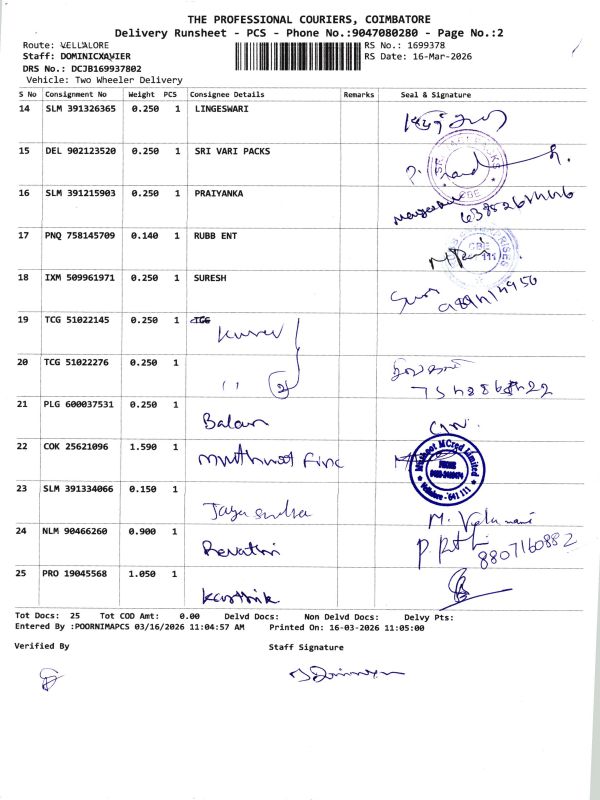 THE PROFESSIONAL COURIERS, COIMBATORE
Delivery Runsheet - PCS - Phone No.:9047080280 - Page No.:2
Route: VELLALORE RS No.: 1699378
Staff: DOMINICXAVIER RS Date: 16-Mar-2026
DRS No.: DCJB169937802
Vehicle: Two Wheeler Delivery
S No Consignment No Weight PCS Consignee Details Remarks Seal & Signature
14 SLM 391326365 0.250 1 LINGESWARI
15 DEL 902123520 0.250 1 SRI VARI PACKS
16 SLM 391215903 0.250 1 PRAIYANKA
17 PNQ 758145709 0.140 1 RUBB ENT
CBE
18 IXM 509961971 0.250 1 SURESH
19 TCG 51022145 0.250 1 TCG
20 TCG 51022276 0.250 1
21 PLG 600037531 0.250 1 Balan
22 COK 25621096 1.590 1 Muthoot Finc
Muthoot MCred Limited
Vellalore - 641 111
23 SLM 391334066 0.150 1
24 NLM 90466260 0.900 1 Revathi 8807160882
25 PRO 19045568 1.050 1 Karthik
Tot Docs: 25 Tot COD Amt: 0.00 Delvd Docs: Non Delvd Docs: Delvy Pts:
Entered By :POORNIMAPCS 03/16/2026 11:04:57 AM Printed On: 16-03-2026 11:05:00
Verified By Staff Signature